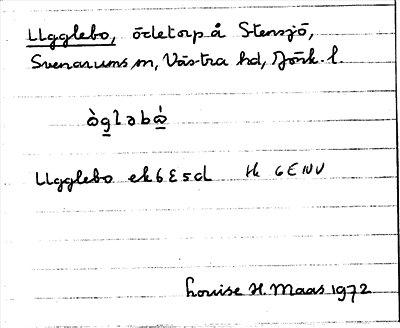 Ugglebo, ödetorp å Stensjö,
Svenarums sn, Västra hd, Jönk. l.
ùgləbò
Ugglebo ek 6 E 5 d Hk 6 E NV
Louise H. Maas 1972